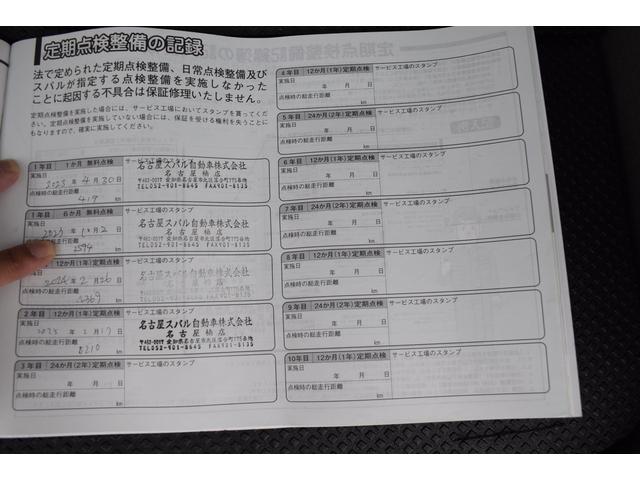 定期点検整備の記録
法で定められた定期点検整備、日常点検整備及び
スバルが指定する点検整備を実施しなかった
ことに起因する不具合は保証修理いたしません。
定期点検整備を実施した場合には、サービス工場においてスタンプを貰ってくだ
さい。定期点検整備を実施していない場合には、保証を受ける権利を失うことに
もなりますので、確実に実施してください。
1年目 1か月 無料点検 サービス工場のスタンプ
実施日
2023年4月30日
点検時の総走行距離
419 km
名古屋スバル自動車株式会社
名古屋楠店
TEL052-901-8645 FAX901-8135
1年目 6か月 無料点検 サービス工場のスタンプ
実施日
2023年10月2日
点検時の総走行距離
2594 km
名古屋スバル自動車株式会社
名古屋楠店
TEL052-901-8645 FAX901-8135
12か月(1年)定期点検 サービス工場のスタンプ
実施日
2024年2月26日
点検時の総走行距離
km
名古屋スバル自動車株式会社
名古屋楠店
2年目 12か月(1年)定期点検 サービス工場のスタンプ
実施日
年 月17日
点検時の総走行距離
8210 km
名古屋スバル自動車株式会社
名古屋楠店
TEL052-901-8645 FAX901-8135
3年目 24か月(2年)定期点検 サービス工場のスタンプ
実施日
年 月 日
点検時の総走行距離
km
4年目 12か月(1年)定期点検 サービス工場のスタンプ
実施日
年 月 日
点検時の総走行距離
km
5年目 24か月(2年)定期点検 サービス工場のスタンプ
実施日
年 月 日
点検時の総走行距離
km
6年目 12か月(1年)定期点検 サービス工場のスタンプ
実施日
年 月 日
点検時の総走行距離
km
7年目 24か月(2年)定期点検 サービス工場のスタンプ
実施日
年 月 日
点検時の総走行距離
km
8年目 12か月(1年)定期点検 サービス工場のスタンプ
実施日
年 月 日
点検時の総走行距離
km
9年目 24か月(2年)定期点検 サービス工場のスタンプ
実施日
年 月 日
点検時の総走行距離
km
10年目 12か月(1年)定期点検 サービス工場のスタンプ
実施日
年 月 日
点検時の総走行距離
km